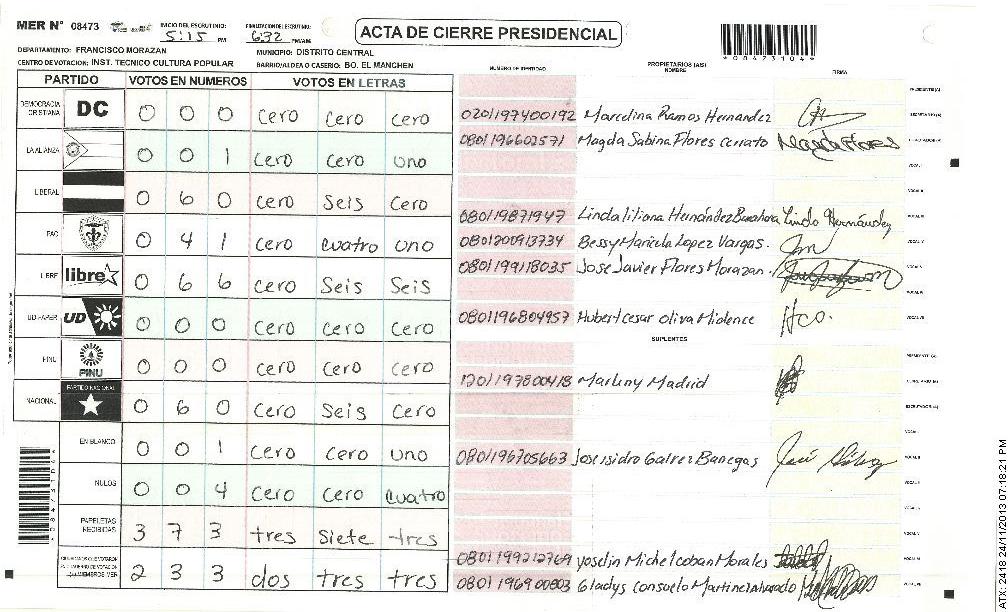 MER N° 08473 INICIO DEL ESCRUTINIO: 5:15 PM FINALIZACION DEL ESCRUTINIO: 632 PM/AM ACTA DE CIERRE PRESIDENCIAL
*08473104*
DEPARTAMENTO: FRANCISCO MORAZAN MUNICIPIO: DISTRITO CENTRAL
CENTRO DE VOTACION: INST. TECNICO CULTURA POPULAR BARRIO/ALDEA O CASERIO: BO. EL MANCHEN
PARTIDO VOTOS EN NUMEROS VOTOS EN LETRAS
DEMOCRACIA CRISTIANA DC 0 0 0 cero cero cero
LA ALIANZA 0 0 1 cero cero uno
LIBERAL 0 6 0 cero Seis Cero
PAC 0 4 1 cero cuatro uno
LIBRE libre 0 6 6 cero Seis Seis
UD-FAPER UD 0 0 0 cero cero cero
PINU PINU 0 0 0 cero cero cero
NACIONAL PARTIDO NACIONAL 0 6 0 cero Seis Cero
EN BLANCO 0 0 1 cero cero uno
NULOS 0 0 4 cero cero cuatro
PAPELETAS RECIBIDAS 3 7 3 tres Siete tres
2 3 3 dos tres tres
NUMERO DE IDENTIDAD PROPIETARIOS (AS) NOMBRE FIRMA
0201197400192 Marcelina Ramos Hernandez
0801196602571 Magda Sabina Flores cerrato Magda Flores
080119871947 Linda liliana Hernández Barahona Linda Hernández
0801200913734 Bessy Maricela Lopez Vargas.
0801199118035 Jose Javier Flores Morazan.
0801196804957 Hubert cesar oliva Midence Hco.
SUPLENTES
1701197800418 Marleny Madrid
0801196705663 Jose isidro Galvez Banegas
0801199212769 yoselin Michel coban Morales
0801196900803 Gladys Consuelo Martinez
ATX: 2418 24/11/2013 07:18:21 PM